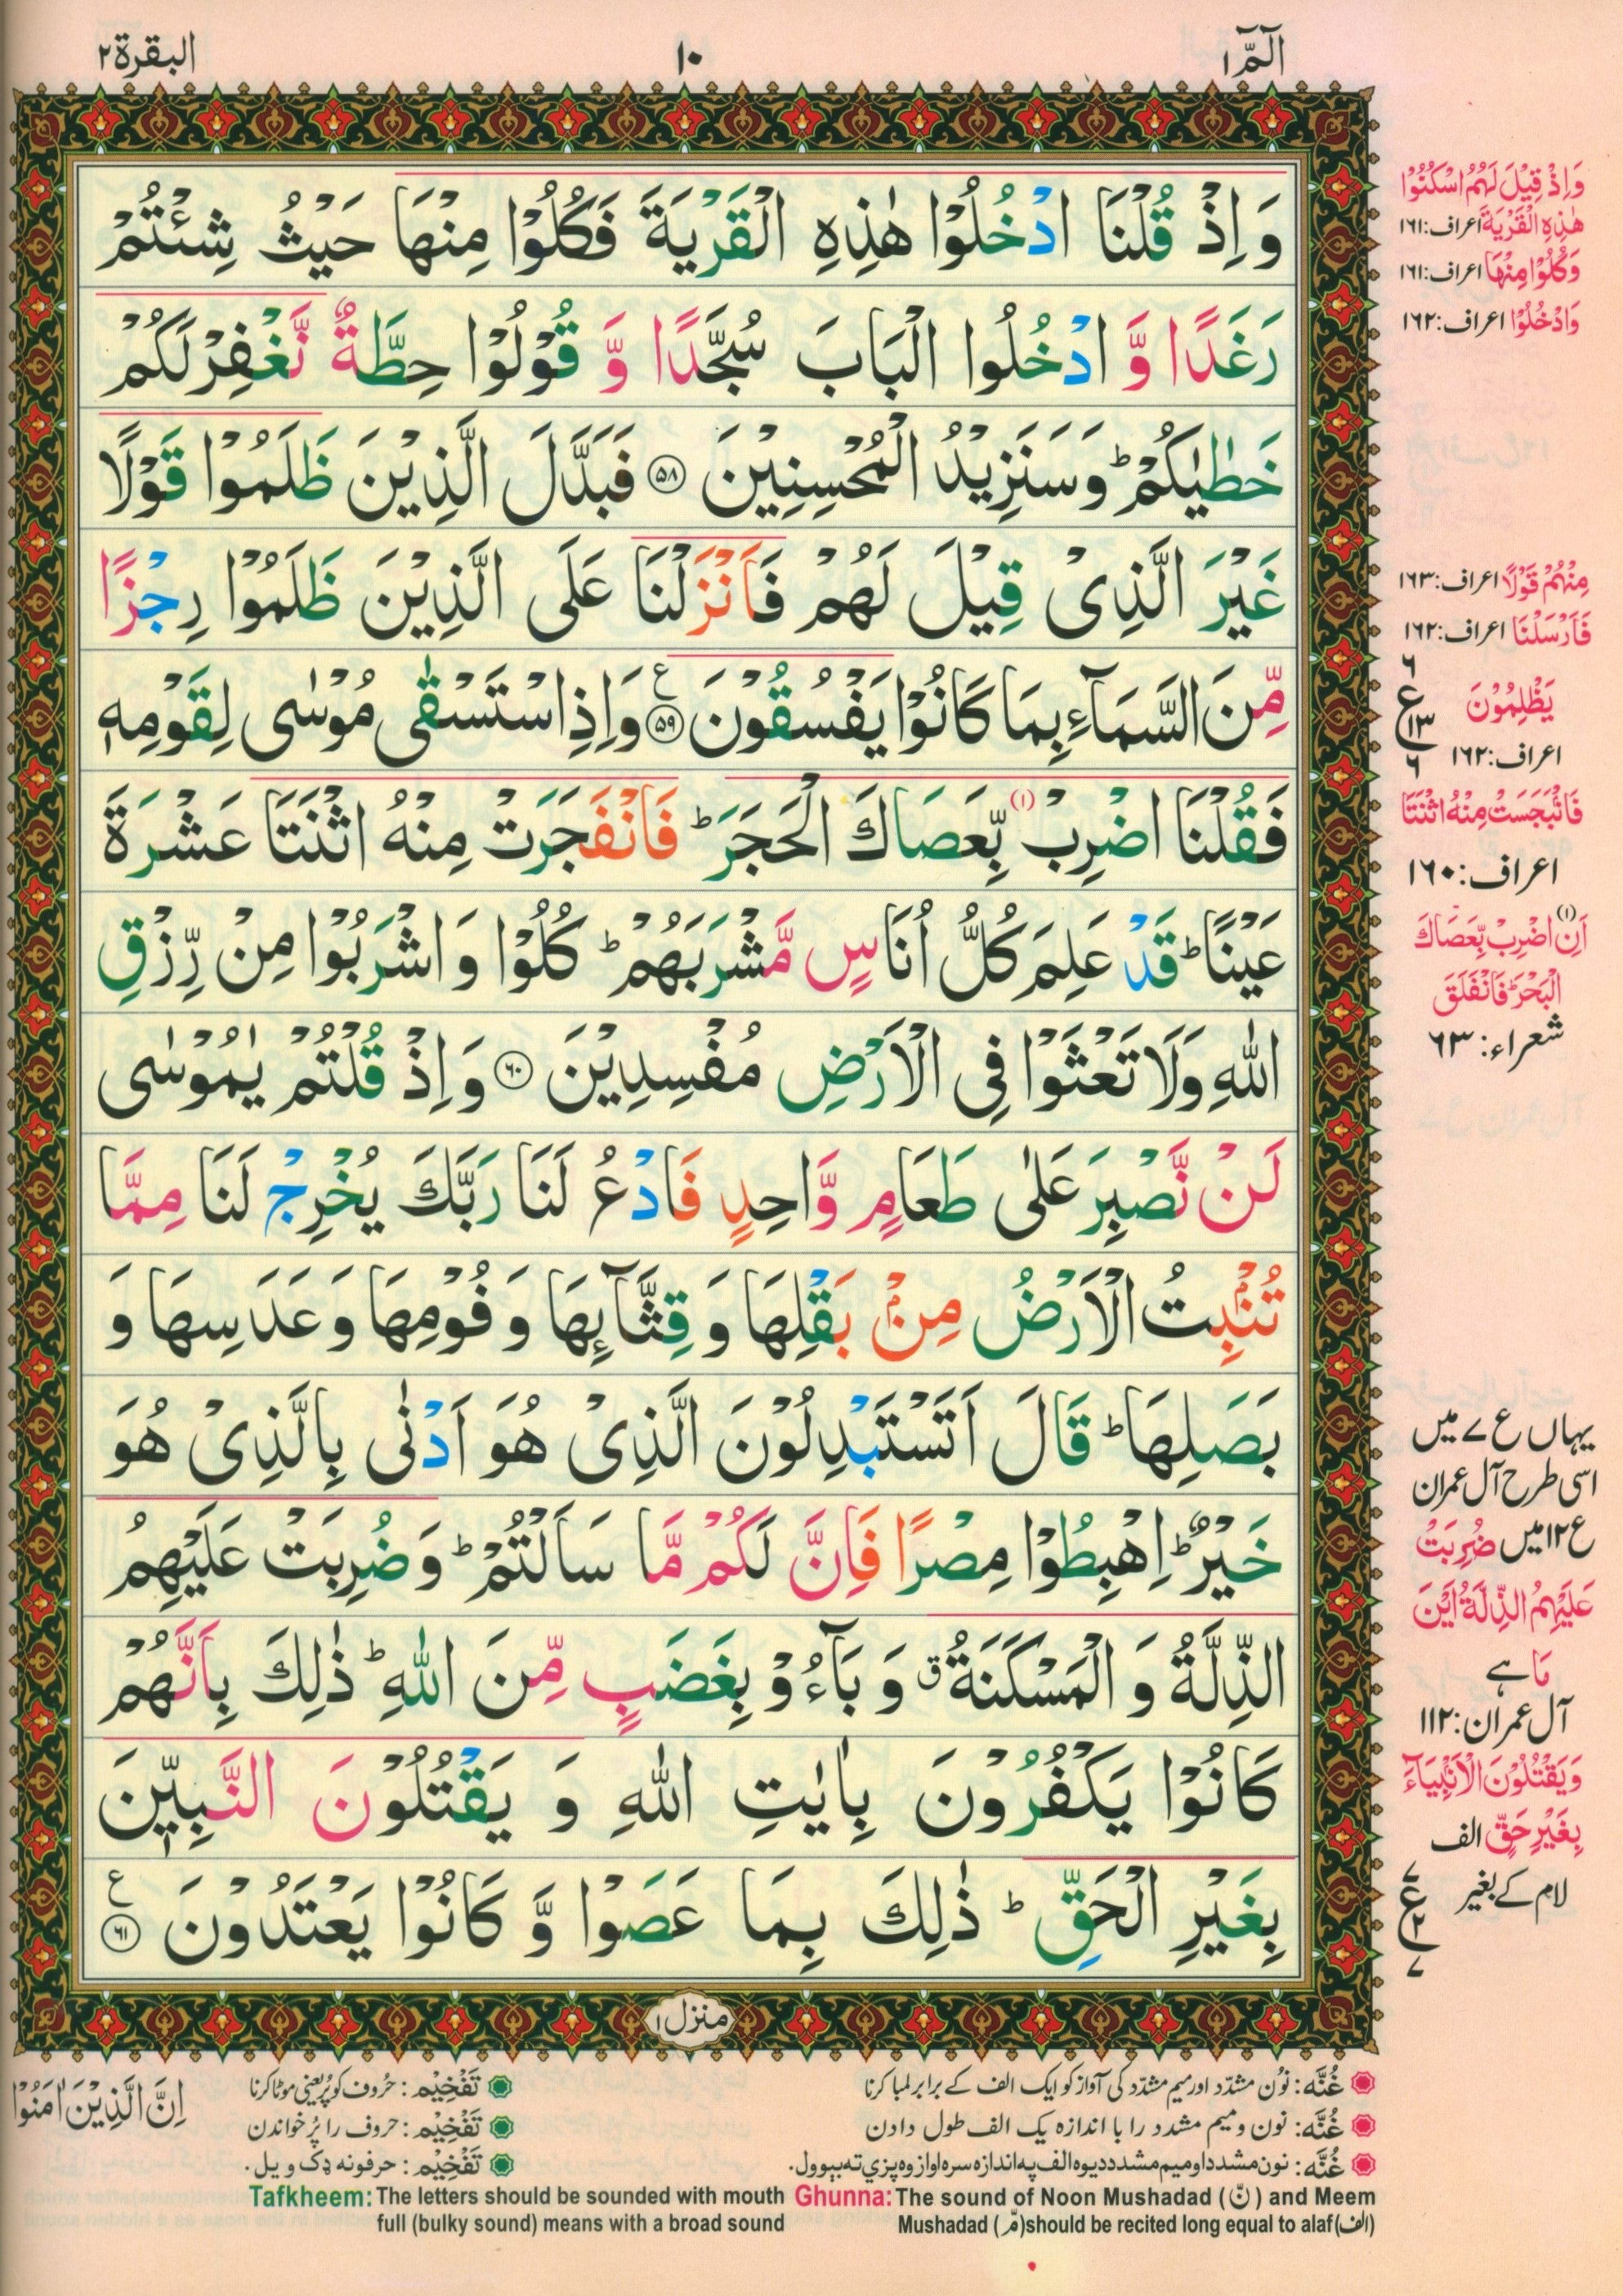 الٓمّٓ ١
١٠
البقرة ٢
وَ اِذْ قُلْنَا ادْخُلُوْا هٰذِهِ الْقَرْيَةَ فَكُلُوْا مِنْهَا حَيْثُ شِئْتُمْ
رَغَدًا وَّ ادْخُلُوا الْبَابَ سُجَّدًا وَّ قُوْلُوْا حِطَّةٌ نَّغْفِرْ لَكُمْ
خَطٰيٰكُمْ ؕ وَ سَنَزِيْدُ الْمُحْسِنِيْنَ ﴿۵۸﴾ فَبَدَّلَ الَّذِيْنَ ظَلَمُوْا قَوْلًا
غَيْرَ الَّذِىْ قِيْلَ لَهُمْ فَاَنْزَلْنَا عَلَى الَّذِيْنَ ظَلَمُوْا رِجْزًا
مِّنَ السَّمَآءِ بِمَا كَانُوْا يَفْسُقُوْنَ ﴿۵۹﴾ ع وَ اِذِ اسْتَسْقٰى مُوْسٰى لِقَوْمِهٖ
فَقُلْنَا اضْرِبْ (١) بِّعَصَاكَ الْحَجَرَ ؕ فَانْفَجَرَتْ مِنْهُ اثْنَتَا عَشْرَةَ
عَيْنًا ؕ قَدْ عَلِمَ كُلُّ اُنَاسٍ مَّشْرَبَهُمْ ؕ كُلُوْا وَ اشْرَبُوْا مِنْ رِّزْقِ
اللّٰهِ وَلَا تَعْثَوْا فِى الْاَرْضِ مُفْسِدِيْنَ ﴿۶۰﴾ وَ اِذْ قُلْتُمْ يٰمُوْسٰى
لَنْ نَّصْبِرَ عَلٰى طَعَامٍ وَّاحِدٍ فَادْعُ لَنَا رَبَّكَ يُخْرِجْ لَنَا مِمَّا
تُنْۢبِتُ الْاَرْضُ مِنْۢ بَقْلِهَا وَ قِثَّآئِهَا وَ فُوْمِهَا وَ عَدَسِهَا وَ
بَصَلِهَا ؕ قَالَ اَتَسْتَبْدِلُوْنَ الَّذِىْ هُوَ اَدْنٰى بِالَّذِىْ هُوَ
خَيْرٌ ؕ اِهْبِطُوْا مِصْرًا فَاِنَّ لَكُمْ مَّا سَاَلْتُمْ ؕ وَ ضُرِبَتْ عَلَيْهِمُ
الذِّلَّةُ وَ الْمَسْكَنَةُ ۗ وَ بَآءُوْ بِغَضَبٍ مِّنَ اللّٰهِ ؕ ذٰلِكَ بِاَنَّهُمْ
كَانُوْا يَكْفُرُوْنَ بِاٰيٰتِ اللّٰهِ وَ يَقْتُلُوْنَ النَّبِيّٖنَ
بِغَيْرِ الْحَقِّ ؕ ذٰلِكَ بِمَا عَصَوْا وَّ كَانُوْا يَعْتَدُوْنَ ﴿۶۱﴾ ع
وَاِذْ قِيْلَ لَهُمُ اسْكُنُوْا
هٰذِهِ الْقَرْيَةَ اعراف: ١٦١
وَكُلُوْا مِنْهَا اعراف: ١٦١
وَادْخُلُوْا اعراف: ١٦٢
مِنْهُمْ قَوْلًا اعراف: ١٦٣
فَاَرْسَلْنَا اعراف: ١٦٢
٦
ع ١٣
٦
يَظْلِمُوْنَ
اعراف: ١٦٢
فَانْۢبَجَسَتْ مِنْهُ اثْنَتَا
اعراف: ١٦٠
(١) اَنِ اضْرِبْ بِّعَصَاكَ
الْبَحْرَ ؕ فَانْفَلَقَ
شعراء: ٦٣
یہاں ع ۷ میں
اسی طرح آل عمران
ع ۱۲ میں ضُرِبَتْ
عَلَيْهِمُ الذِّلَّةُ اَيْنَ
مَا ہے
آل عمران: ١١٢
وَيَقْتُلُوْنَ الْاَنْۢبِيَآءَ
بِغَيْرِ حَقٍّ الف
لام کے بغیر
٧
ع ٢
٧
منزل ١
غُنَّه: نُون مشدّد اور میم مشدّد کی آواز کو ایک الف کے برابر لمبا کرنا
غُنَّه: نون و میم مشدد را با اندازہ یک الف طول دادن
غُنَّه: نون مشدد او میم مشدد دیوه الف په اندازه سره اواز وه پزې ته بېوول.
Ghunna: The sound of Noon Mushadad (نّ) and Meem
Mushadad (مّ) should be recited long equal to alaf (الف)
تَفْخِيْم: حُروف کو پُر یعنی موٹا کرنا
تَفْخِيْم: حروف را پُر خواندن
تَفْخِيْم: حرفونه ډک ویل.
Tafkheem: The letters should be sounded with mouth
full (bulky sound) means with a broad sound
اِنَّ الَّذِيْنَ اٰمَنُوْا